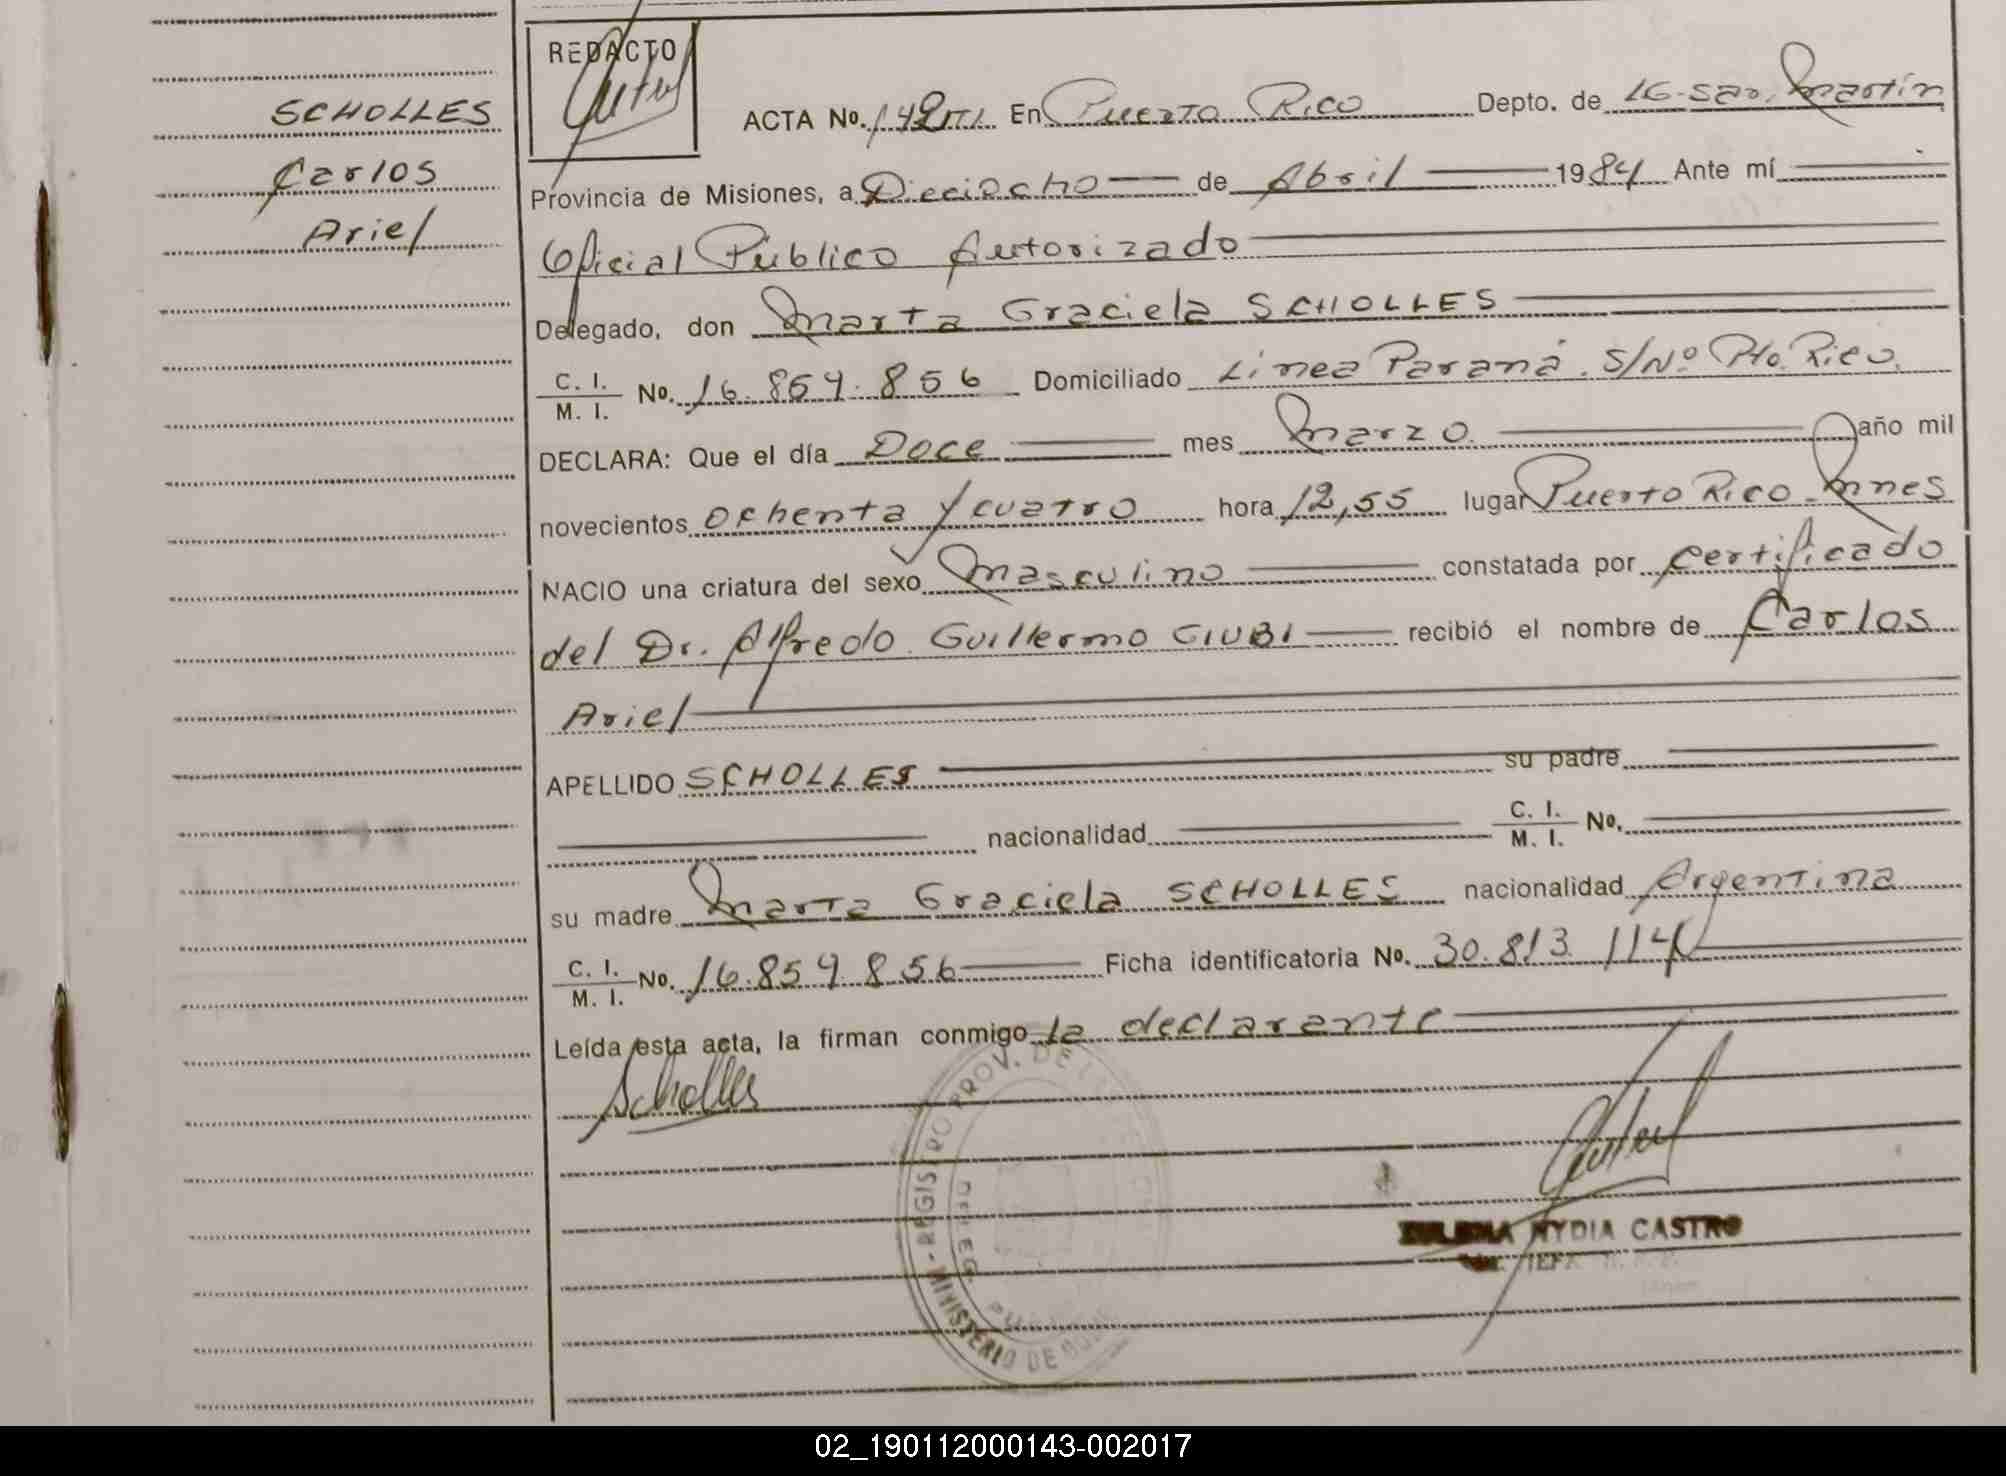 SCHOLLES
Carlos
Ariel
REDACTO
ACTA No. 142 En Puerto Rico Depto. de LG. San Martín
Provincia de Misiones, a Dieciocho de Abril 1984 Ante mí
Oficial Público Autorizado
Delegado, don Marta Graciela SCHOLLES
C. I.
M. I. No. 16.859.856 Domiciliado Línea Paraná. S/Nº Pto. Rico.
DECLARA: Que el día Doce mes Marzo año mil
novecientos ochenta y cuatro hora 12,55 lugar Puerto Rico - Mnes
NACIO una criatura del sexo Masculino constatada por certificado
del Dr. Alfredo Guillermo CIUBI recibió el nombre de Carlos
Ariel
APELLIDO SCHOLLES su padre
nacionalidad C. I.
M. I. No.
su madre Marta Graciela SCHOLLES nacionalidad Argentina
C. I.
M. I. No. 16.859.856 Ficha identificatoria No. 30.813.114
Leída esta acta, la firman conmigo la declarante
Scholles
NYDIA CASTRO
JEFA
MINISTERIO DE - REGISTRO PROV. DE
DELEG.
02_190112000143-002017